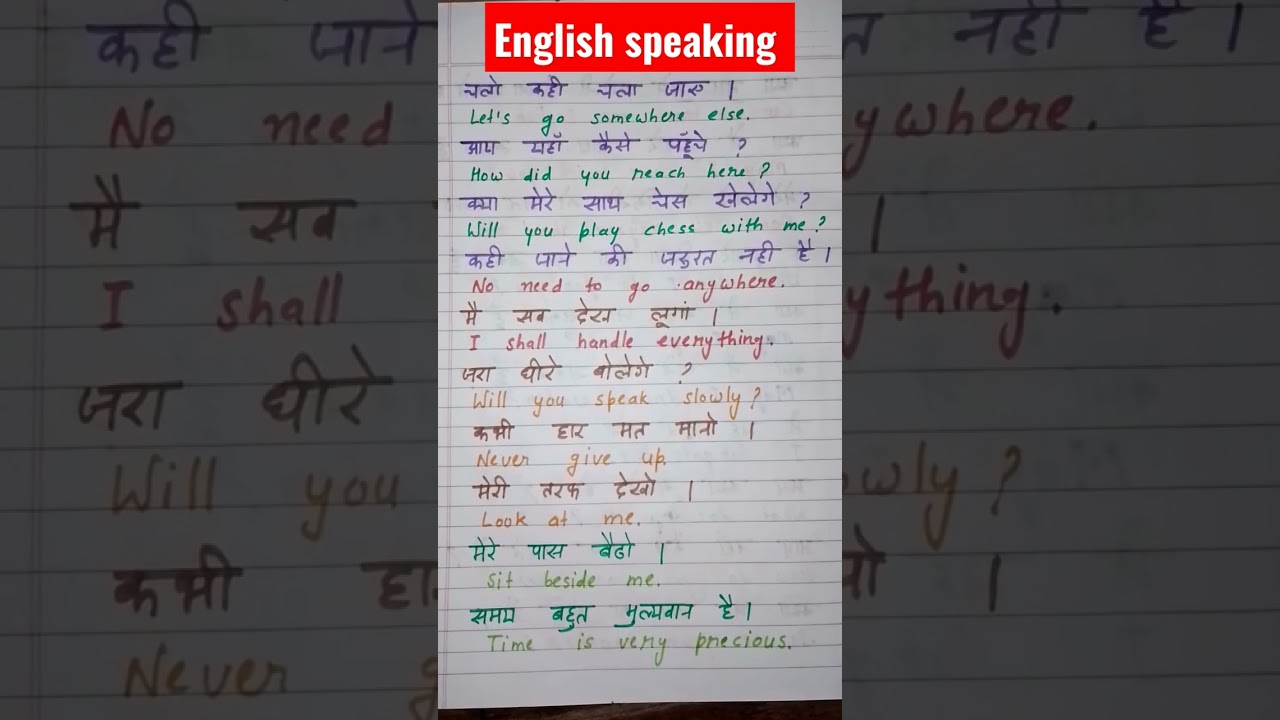 English speaking
चलो कही चला जाए ।
Let's go somewhere else.
आप यहाँ कैसे पहुँचे ?
How did you reach here ?
क्या मेरे साथ चेस खेलेगे ?
Will you play chess with me ?
कही जाने की जरुरत नही है ।
No need to go anywhere.
मै सब देख लूगां ।
I shall handle everything.
जरा धीरे बोलेगे ?
Will you speak slowly ?
कभी हार मत मानो ।
Never give up.
मेरी तरफ देखो ।
Look at me.
मेरे पास बैठो ।
Sit beside me.
समय बहुत मुल्यवान है ।
Time is very precious.